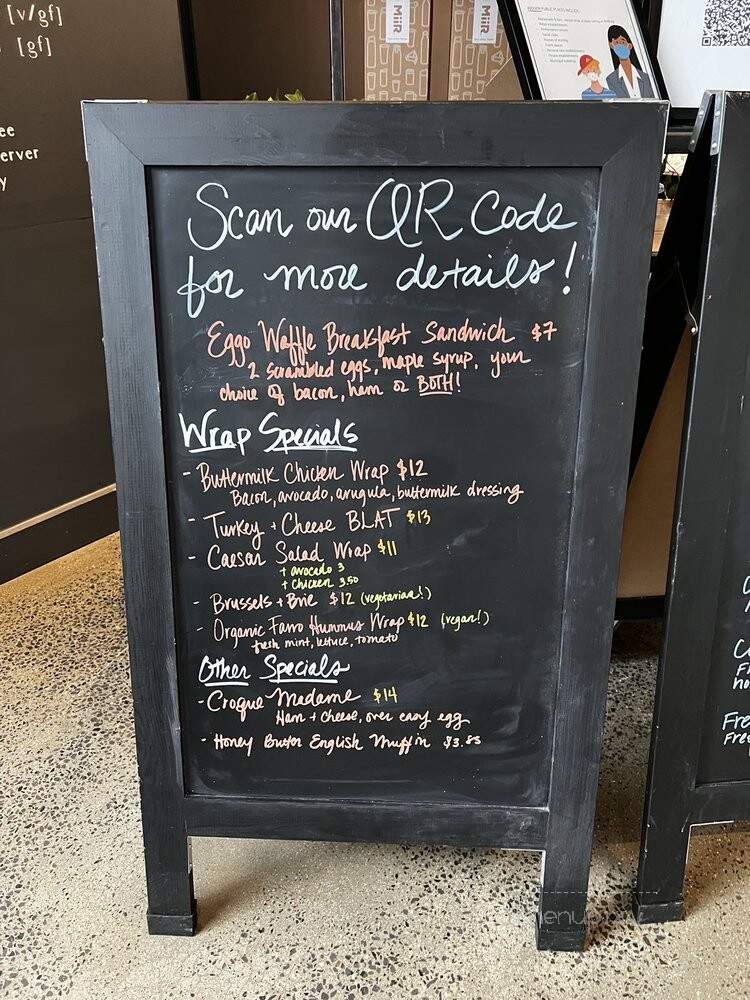 [v/gf]
[gf]
MiiR
MiiR
Scan our QR Code
for more details!
Eggo Waffle Breakfast Sandwich $7
2 scrambled eggs, maple syrup, your
choice of bacon, ham or BOTH!
Wrap Specials
- Buttermilk Chicken Wrap $12
Bacon, avocado, arugula, buttermilk dressing
- Turkey + Cheese BLAT $13
- Caesar Salad Wrap $11
+ avocado 3
+ chicken 3.50
- Brussels + Brie $12 (vegetarian!)
- Organic Farro Hummus Wrap $12 (vegan!)
fresh mint, lettuce, tomato
Other Specials
- Croque Madame $14
Ham + cheese, over easy egg
- Honey Butter English Muffin $3.85